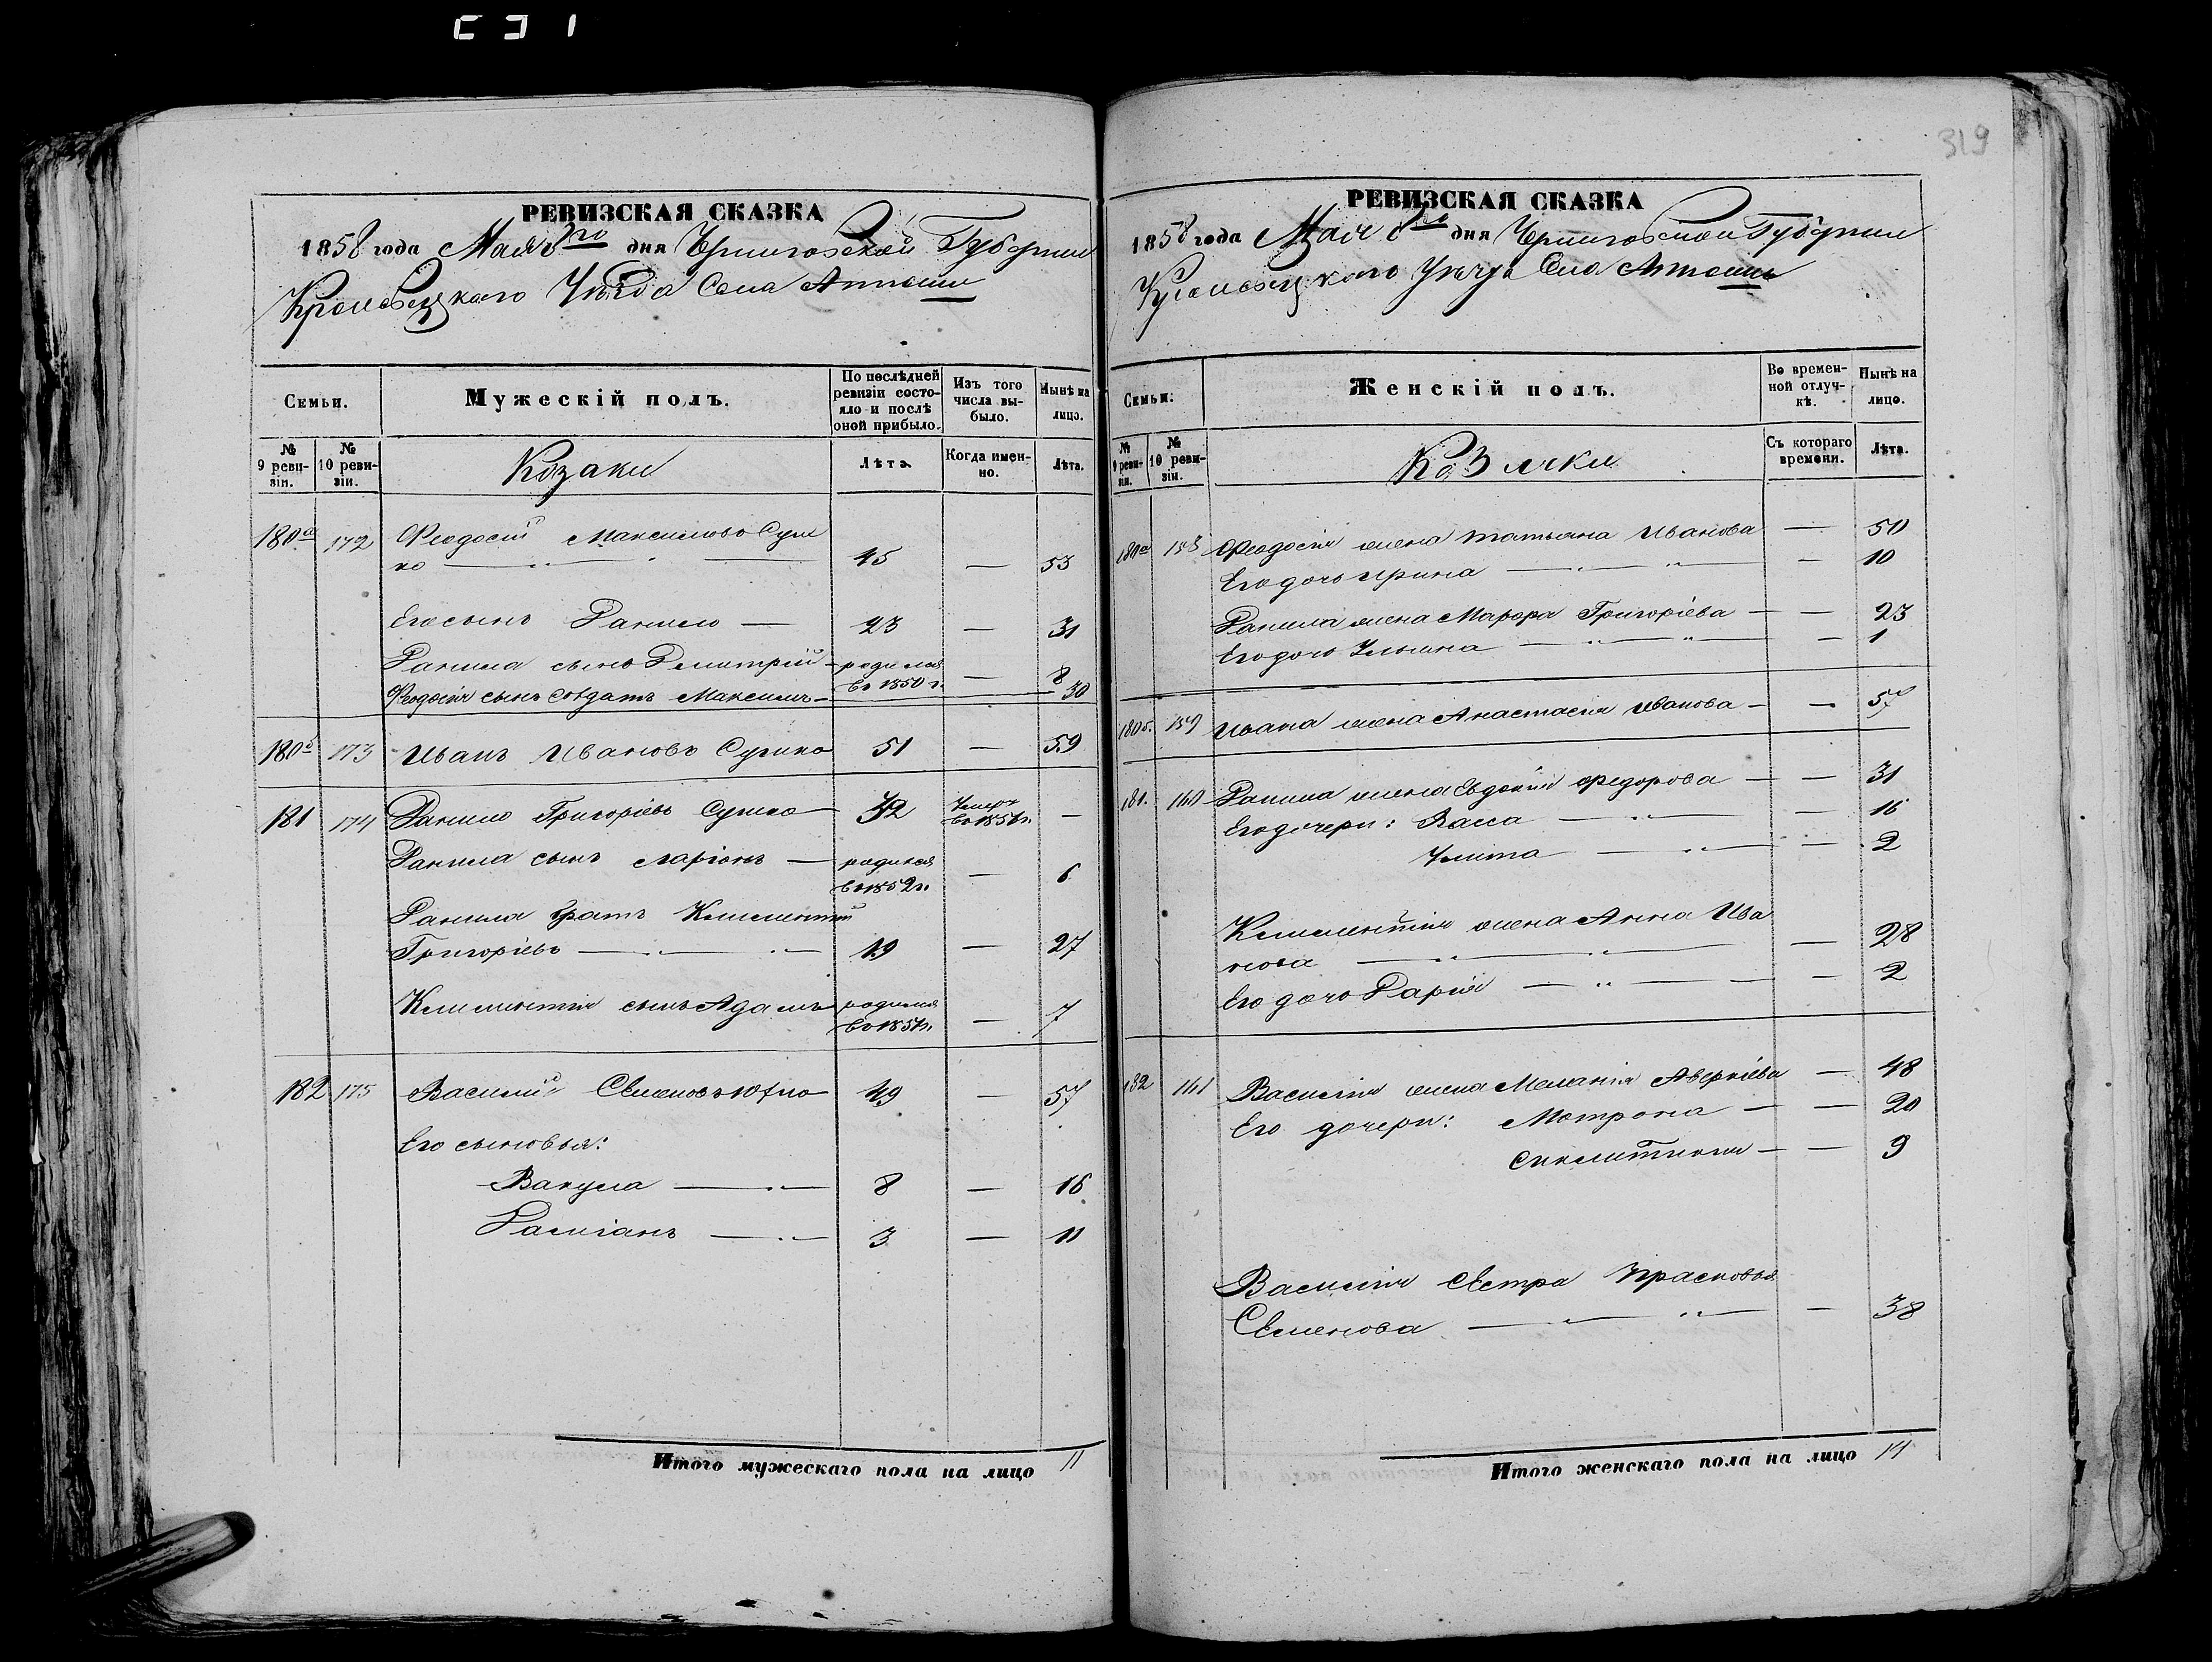 319
РЕВИЗСКАЯ СКАЗКА
1858 года Мая 8го дня Черниговской Губернии
Кролевецкаго Уѣзда Села
Семьи.
Мужескій полъ.
По послѣдней ревизіи состояло и послѣ оной прибыло.
Изъ того числа выбыло.
Нынѣ на лицо.
№ 9 ревизіи.
№ 10 ревизіи.
Козаки
Лѣта.
Когда именно.
Лѣта.
180а 172 Феодосій Максимовъ Суш
ко — 45 — 53
Его сынъ Данило — 23 — 31
Данила сынъ Дмитрій — родился въ 1850 г. — 8
Феодосія сынъ солдатъ Максимъ — 30
180б 173 Иванъ Ивановъ Сушко 51 — 59
181 174 Данило Григоріевъ Сушко 32 Умеръ въ 1851 г. —
Данила сынъ Ларіонъ — родился въ 1852 г. — 6
Данила братъ Климентій
Григоріевъ — 19 — 27
Климентія сынъ Адамъ родился въ 1851 г. — 7
182 175 Василій Семеновъ 49 — 57
Его сыновья:
Вакула — 8 — 16
Даміанъ — 3 — 11
Итого мужескаго пола на лицо 11
РЕВИЗСКАЯ СКАЗКА
1858 года Мая 8го дня Черниговской Губернии
Кролевецкаго Уѣзда Села
Семьи.
Женскій полъ.
Во временной отлучкѣ.
Нынѣ на лицо.
№ 9 ревизіи.
№ 10 ревизіи.
Козачки
Съ котораго времени.
Лѣта.
180а Феодосія жена Татьяна Иванова — 50
Его дочь Ирина — — 10
Данила жена Марфа Григоріева — — 23
Его дочь Ульяна — — 1
180б. Ивана жена Анастасія Иванова — — 57
181. 160 Данила жена Евдокія Федорова — — 31
Его дочери: Васса — — 16
Улита — — 2
Климентія жена Анна Ива
нова — — 28
Его дочь Дарія — — 2
182 161 Василія жена Меланія Аверкіева — 48
Его дочери: Мотрона — — 20
Синклитикія — — 9
Василія Сестра Прасковья
Семенова — — 38
Итого женскаго пола на лицо 14